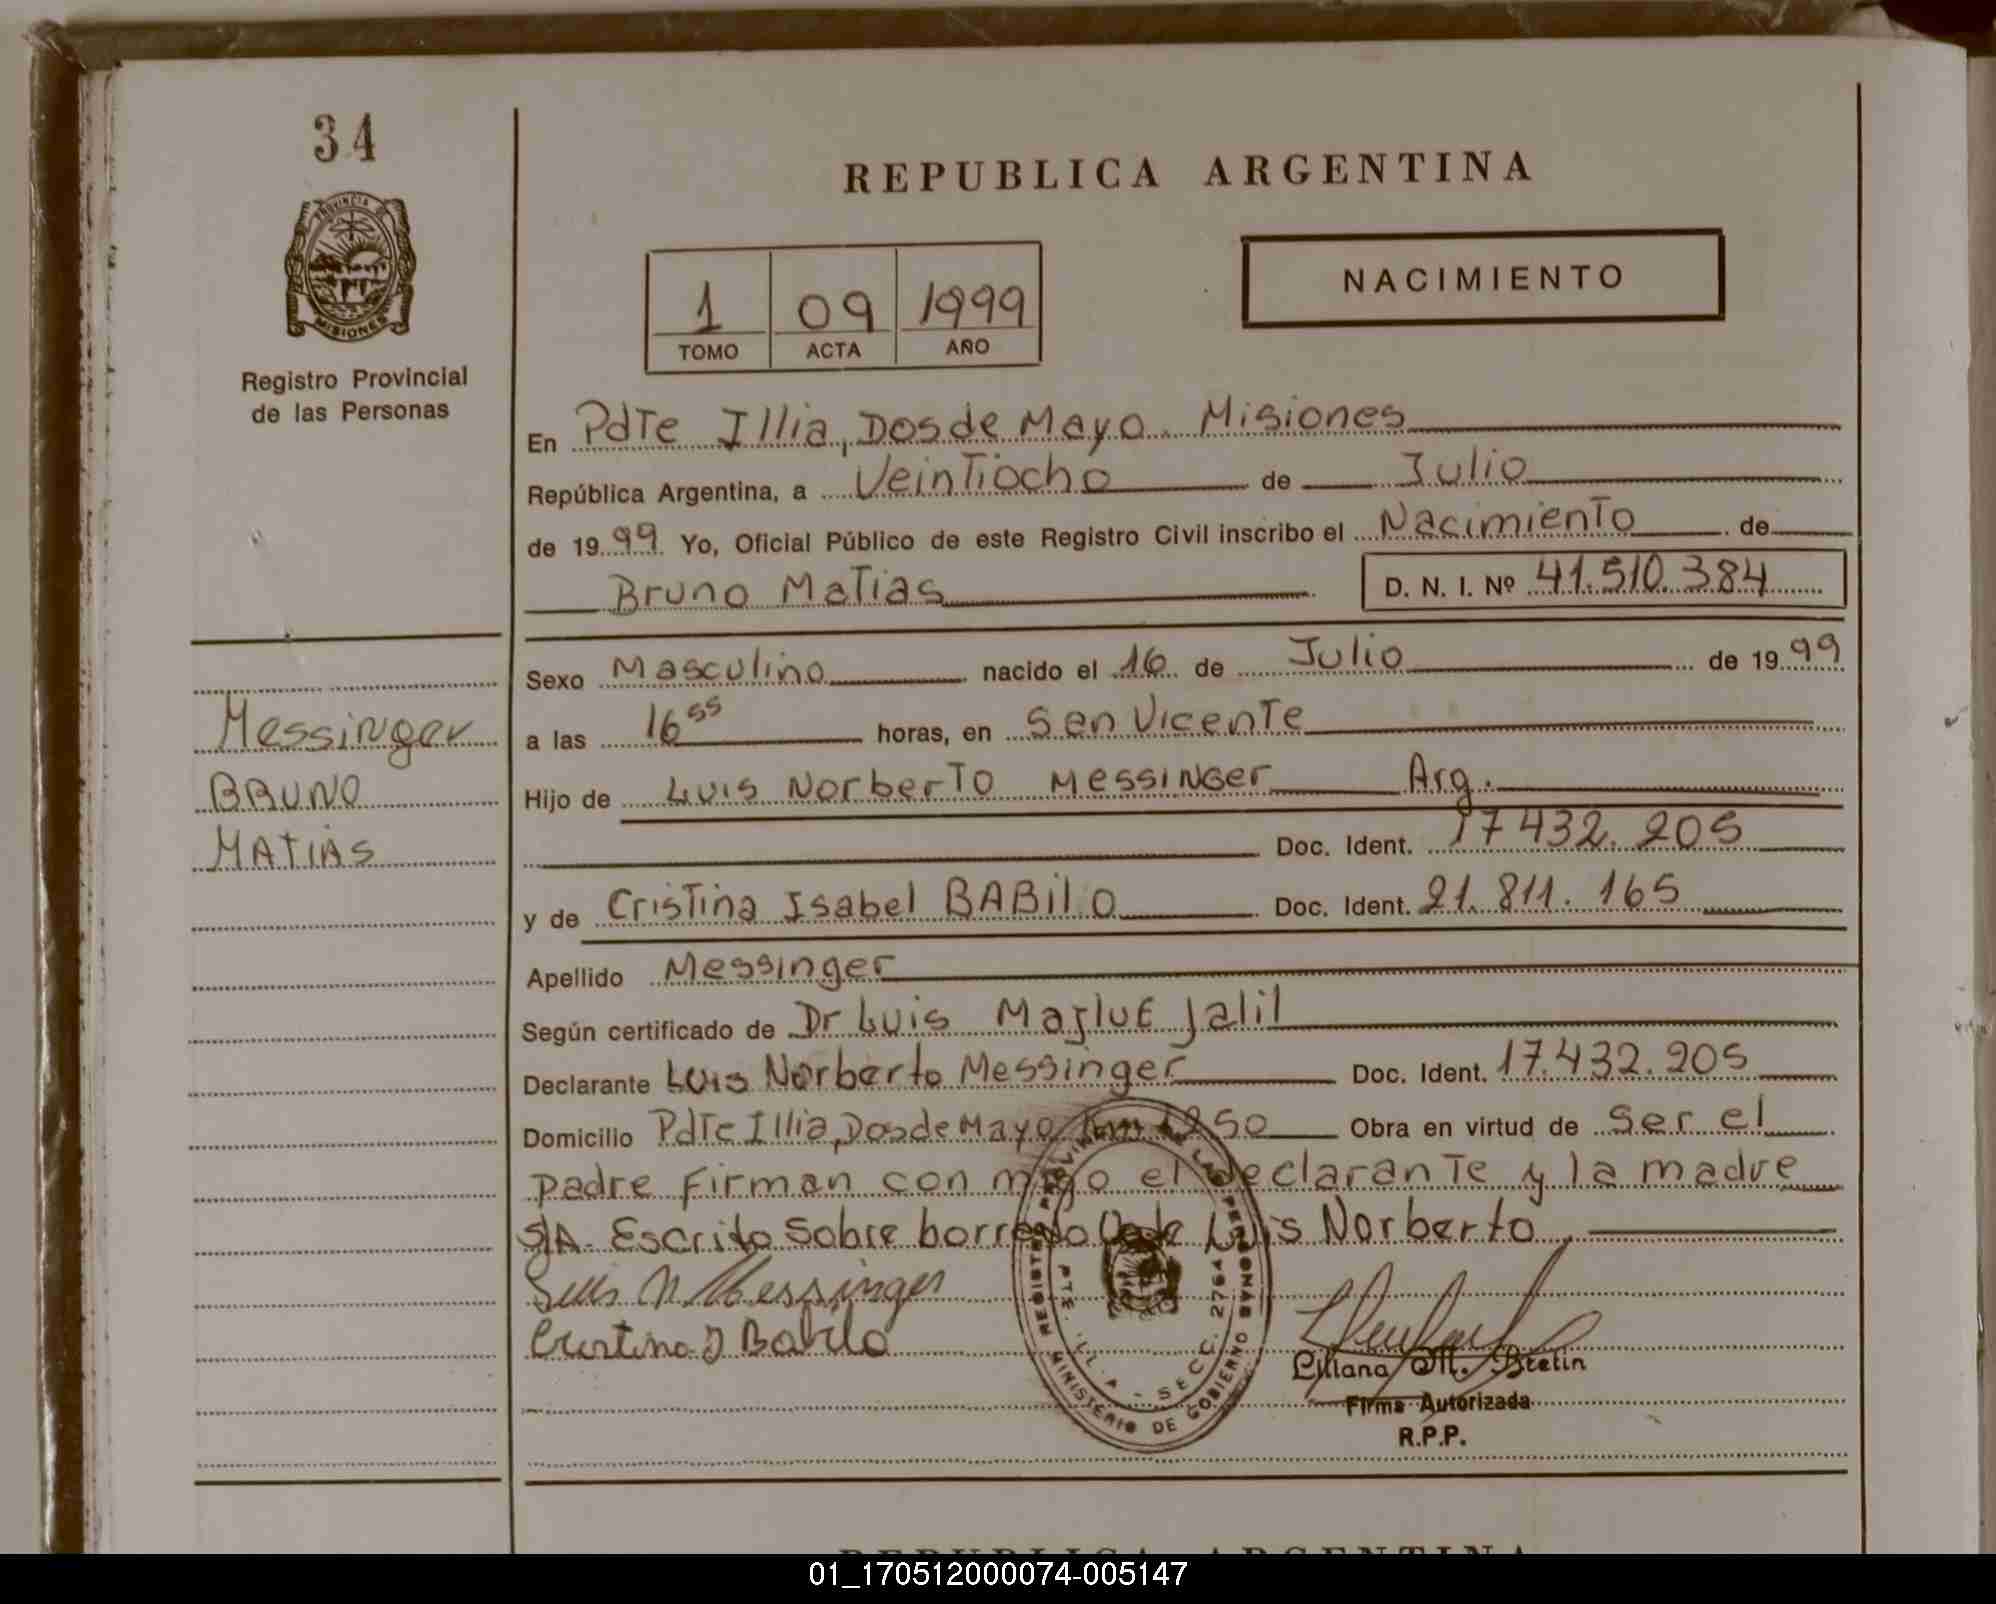 34
PROVINCIA DE
MISIONES
Registro Provincial
de las Personas
Messinger
BRUNO
MATIAS
REPUBLICA ARGENTINA
1 09 1999
TOMO ACTA AÑO
NACIMIENTO
En Pdte Illia, Dos de Mayo. Misiones
República Argentina, a Veintiocho de Julio
de 1999 Yo, Oficial Público de este Registro Civil inscribo el Nacimiento de
Bruno Matias D. N. I. Nº 41.510.384
Sexo Masculino nacido el 16 de Julio de 1999
a las 16 55 horas, en San Vicente
Hijo de Luis Norberto Messinger Arg.
Doc. Ident. 17432.205
y de Cristina Isabel BABilO Doc. Ident. 21.811.165
Apellido Messinger
Según certificado de Dr Luis Jalil
Declarante Luis Norberto Messinger Doc. Ident. 17.432.205
Domicilio Pdte Illia, Dos de Mayo km 1250 Obra en virtud de ser el
padre firman con migo el declarante y la madre
S/A. Escrito sobre borrado Luis Norberto
Luis N. Messinger
Cristina I Babilo
REGISTRO PROVINCIAL DE LAS PERSONAS
PTE. ILLIA - SECC. 2764
MINISTERIO DE GOBIERNO
Liliana M. Bretin
Firma Autorizada
R.P.P.
REPUBLICA ARGENTINA
01_170512000074-005147